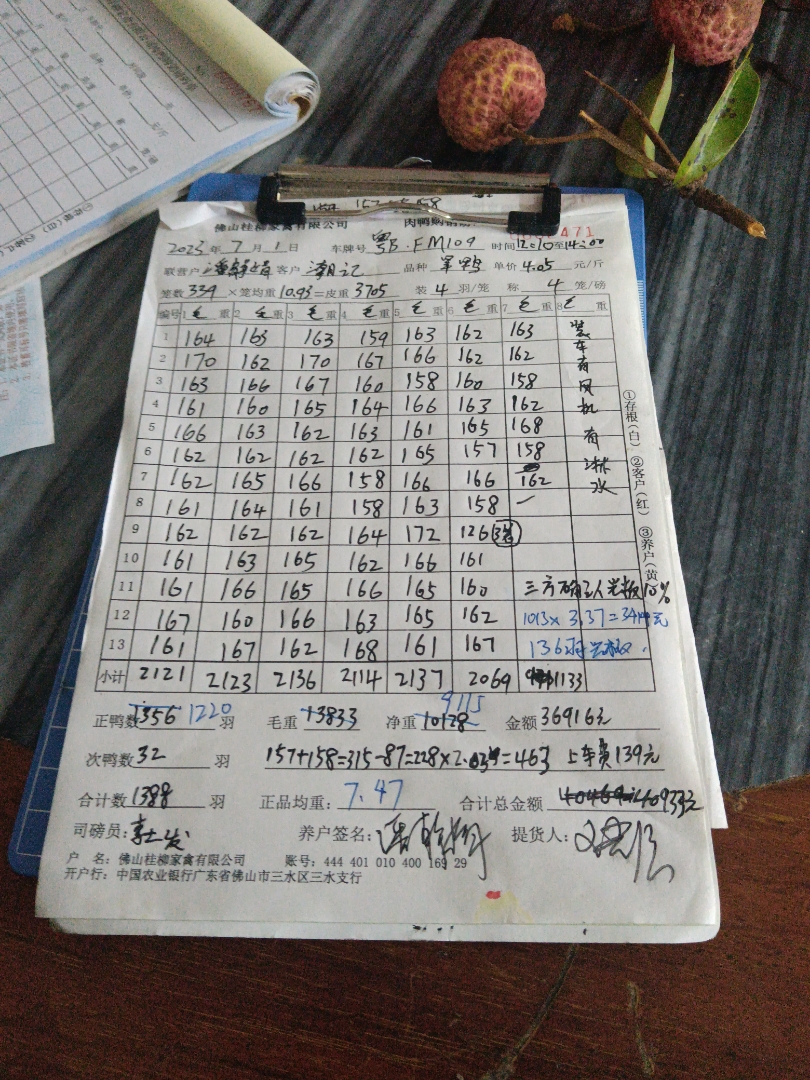 佛山桂柳家禽有限公司
471
2023年7月1日 车牌号 粤B·FM109 时间12:10至14:00
联营户 客户 潮记 品种 单价4.05元/斤
笼数339×笼均重10.93=皮重3705 装4羽/笼 称4笼/磅
编号 1毛重 2毛重 3毛重 4毛重 5毛重 6毛重 7毛重 8毛重
1 164 163 163 159 163 162 163 装
2 170 162 170 167 166 162 162 车有
3 163 166 167 160 158 160 158 风
4 161 160 165 164 166 163 162 机
5 166 163 162 163 161 165 168 有
6 162 162 162 162 165 157 158 淋
7 162 165 166 158 166 166 162 水
8 161 164 161 158 163 158 —
9 162 162 162 164 172 126
10 161 163 165 162 166 161
11 161 166 165 166 165 160 三方确认 10%
12 167 160 166 163 165 162 1013×3.37=3414元
13 161 167 162 168 161 167 136羽
小计 2121 2123 2136 2114 2137 2069 1133
①存根(白) ②客户(红) ③养户(黄
正鸭数1356 1220羽 毛重13833 净重10128 9115 金额36916元
次鸭数32羽 157+158=315-87=228×2.03=463 上车费139元
合计数1388羽 正品均重:7.47 合计总金额 40933元
司磅员: 养户签名: 提货人:
户 名:佛山桂柳家禽有限公司 账号:444 401 010 400 169 29
开户行:中国农业银行广东省佛山市三水区三水支行